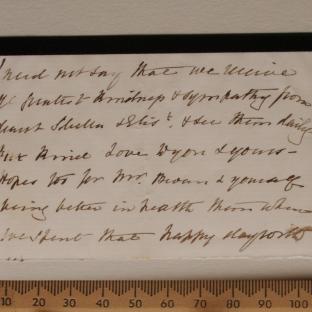 I need not say that we receive
the greatest kindness & sympathy from
Aunt & Elizth. & see them daily
kind love to you & yours -
Hopes too for Mrs. & yourself
being better in health than when
we spent that happy day with
us
10 20 30 40 50 60 70 80 90 100